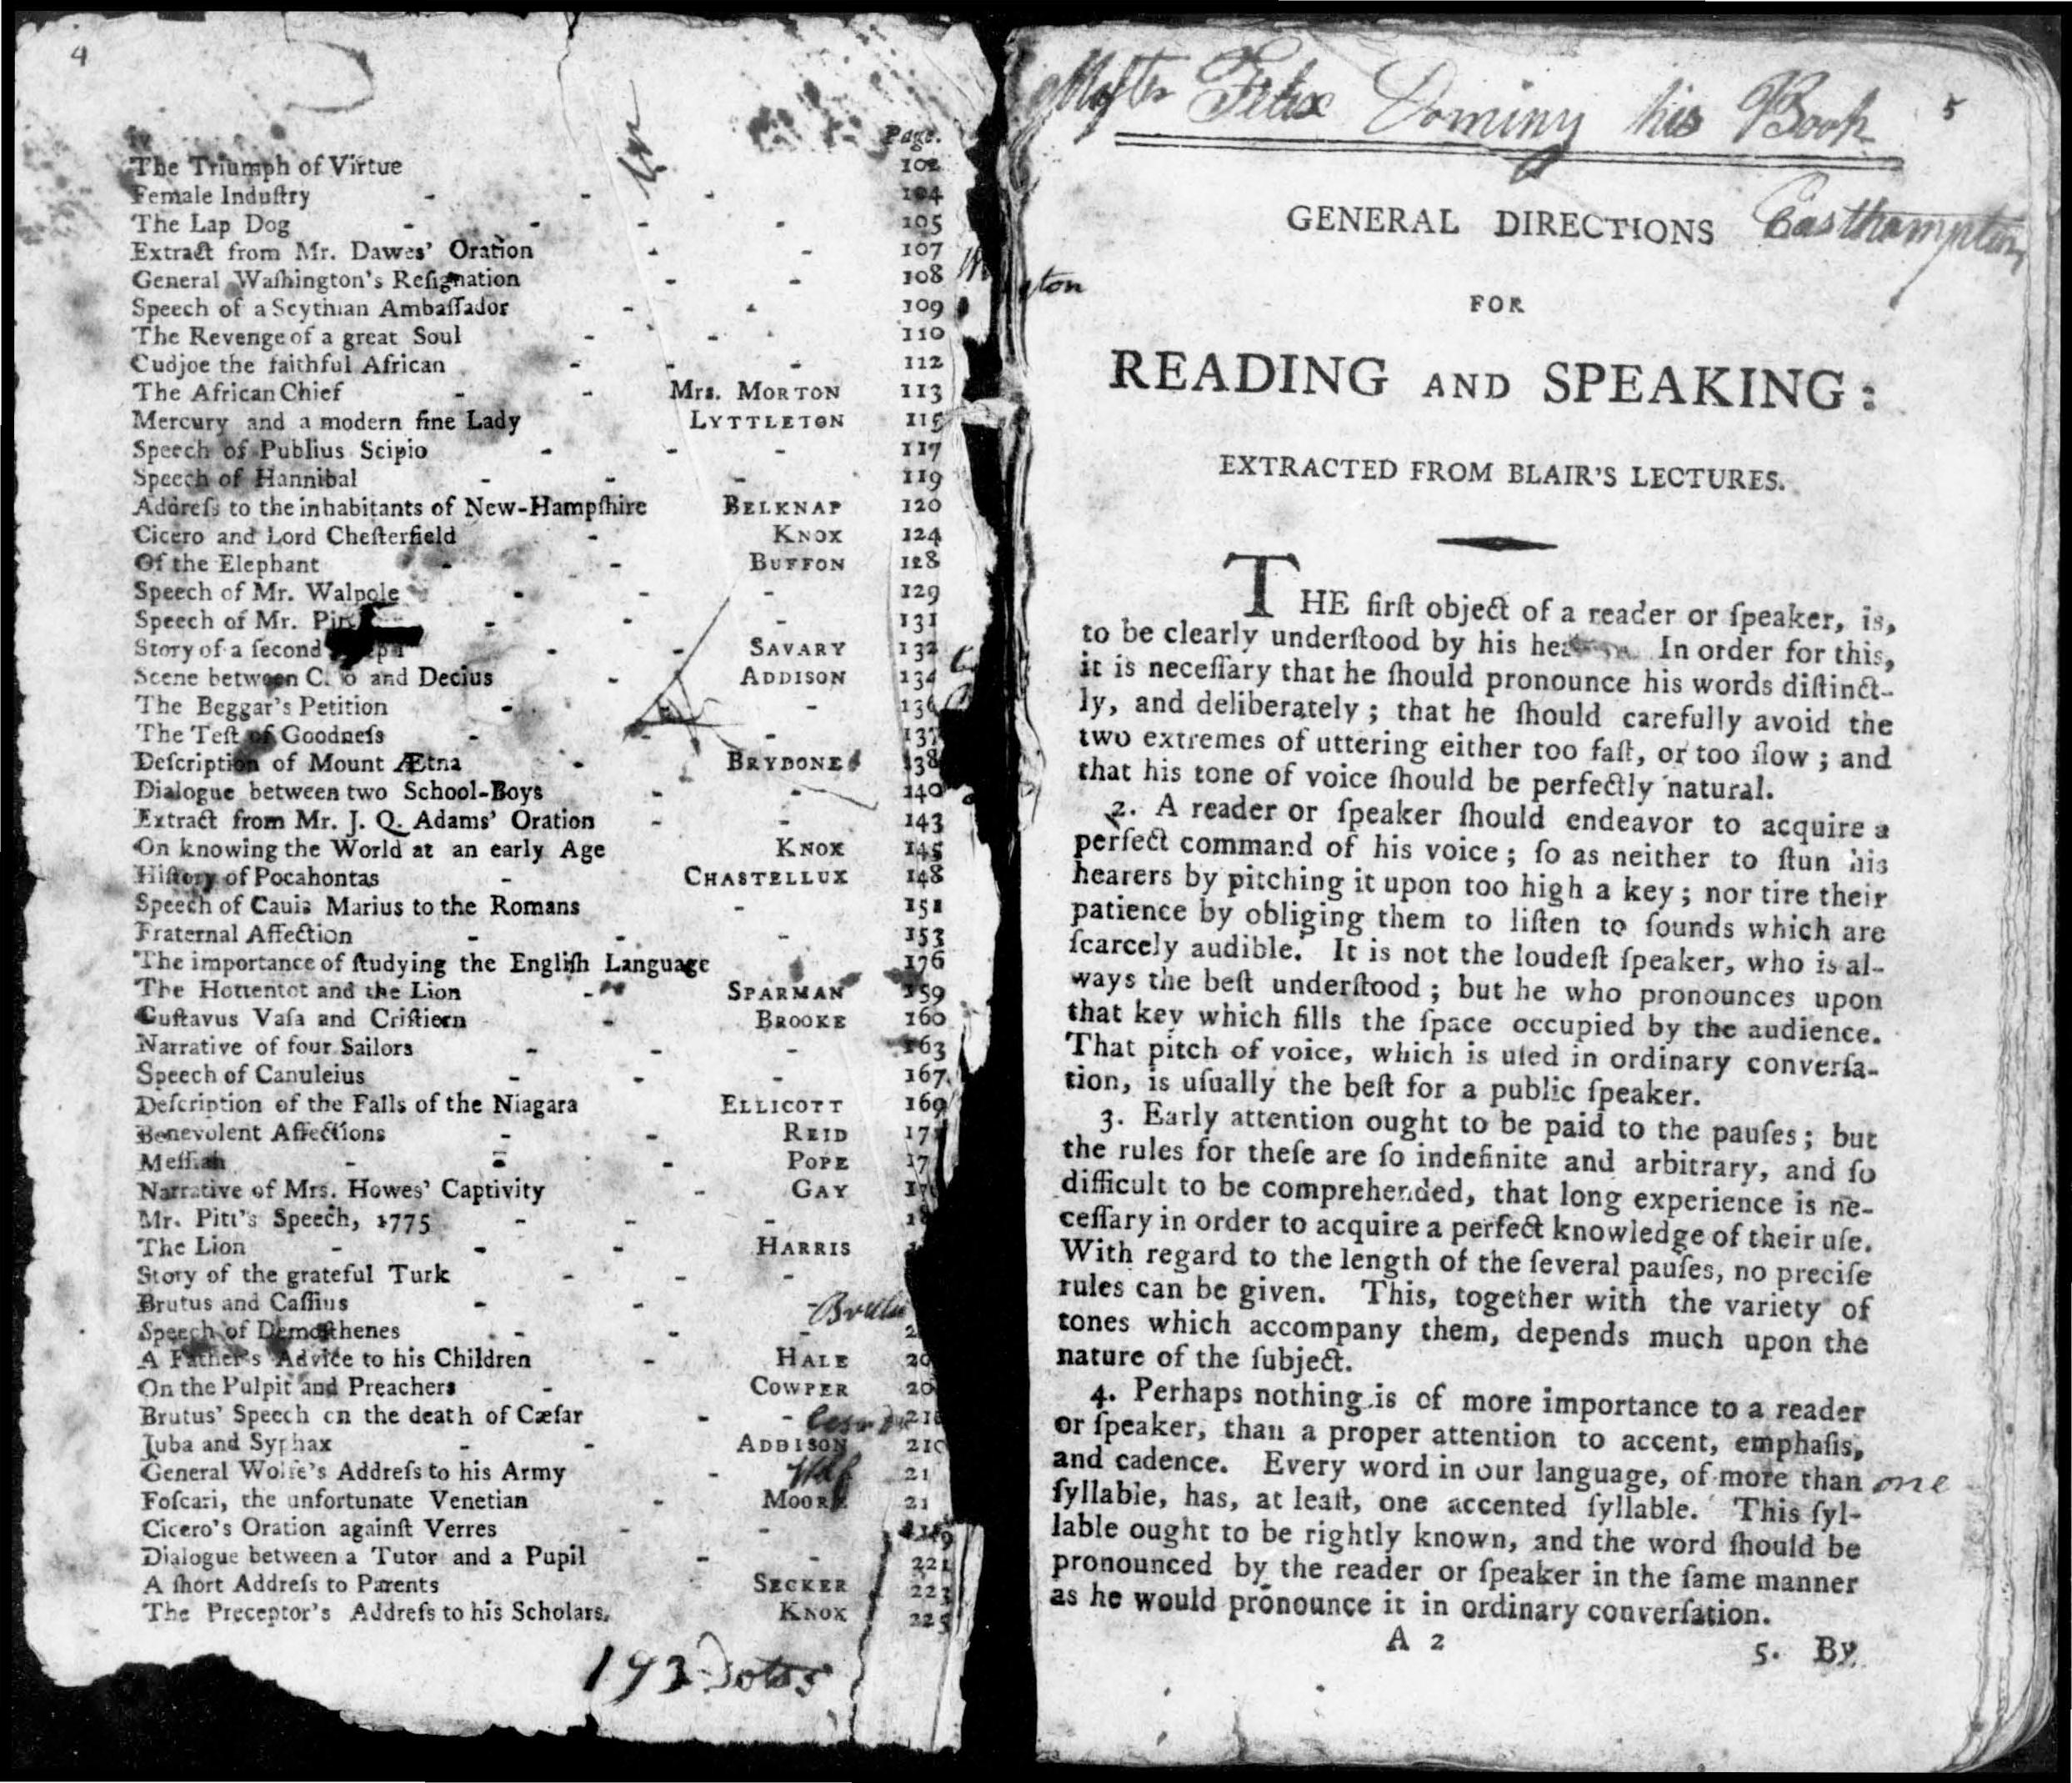 4
Page.
The Triumph of Virtue 102
Female Induſtry - - - - 104
The Lap Dog - - - - 105
Extract from Mr. Dawes' Oration - - 107
General Waſhington's Reſignation - - 108
Speech of a Scythian Ambaſſador - - 109
The Revenge of a great Soul - - - 110
Cudjoe the faithful African - - - 112
The African Chief - - Mrs. MORTON 113
Mercury and a modern fine Lady LYTTLETON 115
Speech of Publius Scipio - - - 117
Speech of Hannibal - - - 119
Addreſs to the inhabitants of New-Hampſhire BELKNAP 120
Cicero and Lord Cheſterfield - KNOX 124
Of the Elephant - - BUFFON 128
Speech of Mr. Walpole - - - 129
Speech of Mr. - - - 131
Story of a ſecond - - SAVARY 132
Scene between and Decius - ADDISON 134
The Beggar's Petition - - 136
The Teſt of Goodneſs - - - 137
Deſcription of Mount Ætna - BRYDONE 138
Dialogue between two School-Boys - - 140
Extract from Mr. J. Q. Adams' Oration - - 143
On knowing the World at an early Age KNOX 145
Hiſtory of Pocahontas - CHASTELLUX 148
Speech of Cauis Marius to the Romans - 151
Fraternal Affection - - - 153
The importance of ſtudying the Engliſh Language 176
The Hottentot and the Lion - SPARMAN 159
Guſtavus Vaſa and Criſtiern - BROOKE 160
Narrative of four Sailors - - - 163
Speech of Canuleius - - - 167
Deſcription of the Falls of the Niagara ELLICOTT 169
Benevolent Affections - - REID
Meſſiah - - - POPE
Narrative of Mrs. Howes' Captivity - GAY
Mr. Pitt's Speech, 1775 - - -
The Lion - - - HARRIS
Story of the grateful Turk - - -
Brutus and Caſſius - - -
Speech of Demoſthenes - - -
A Father's Advice to his Children - HALE
On the Pulpit and Preachers - COWPER
Brutus' Speech on the death of Cæſar - -
Juba and Syphax - - ADDISON
General Wolfe's Addreſs to his Army -
Foſcari, the unfortunate Venetian - MOORE
Cicero's Oration againſt Verres - - 219
Dialogue between a Tutor and a Pupil - - 221
A ſhort Addreſs to Parents SECKER 223
The Preceptor's Addreſs to his Scholars. KNOX 225
193
Felix Dominy his Book
5
Easthampton
GENERAL DIRECTIONS
FOR
READING AND SPEAKING:
EXTRACTED FROM BLAIR'S LECTURES.
THE firſt object of a reader or ſpeaker, is,
to be clearly underſtood by his In order for this,
it is neceſſary that he ſhould pronounce his words diſtinct-
ly, and deliberately; that he ſhould carefully avoid the
two extremes of uttering either too faſt, or too ſlow; and
that his tone of voice ſhould be perfectly natural.
2. A reader or ſpeaker ſhould endeavor to acquire a
perfect command of his voice; ſo as neither to ſtun his
hearers by pitching it upon too high a key; nor tire their
patience by obliging them to liſten to ſounds which are
ſcarcely audible. It is not the loudeſt ſpeaker, who is al-
ways the beſt underſtood; but he who pronounces upon
that key which fills the ſpace occupied by the audience.
That pitch of voice, which is uſed in ordinary converſa-
tion, is uſually the beſt for a public ſpeaker.
3. Early attention ought to be paid to the pauſes; but
the rules for theſe are ſo indefinite and arbitrary, and ſo
difficult to be comprehended, that long experience is ne-
ceſſary in order to acquire a perfect knowledge of their uſe.
With regard to the length of the ſeveral pauſes, no preciſe
rules can be given. This, together with the variety of
tones which accompany them, depends much upon the
nature of the ſubject.
4. Perhaps nothing is of more importance to a reader
or ſpeaker, than a proper attention to accent, emphaſis,
and cadence. Every word in our language, of more than one
ſyllable, has, at leaſt, one accented ſyllable. This ſyl-
lable ought to be rightly known, and the word ſhould be
pronounced by the reader or ſpeaker in the ſame manner
as he would pronounce it in ordinary converſation.
A 2
5. By